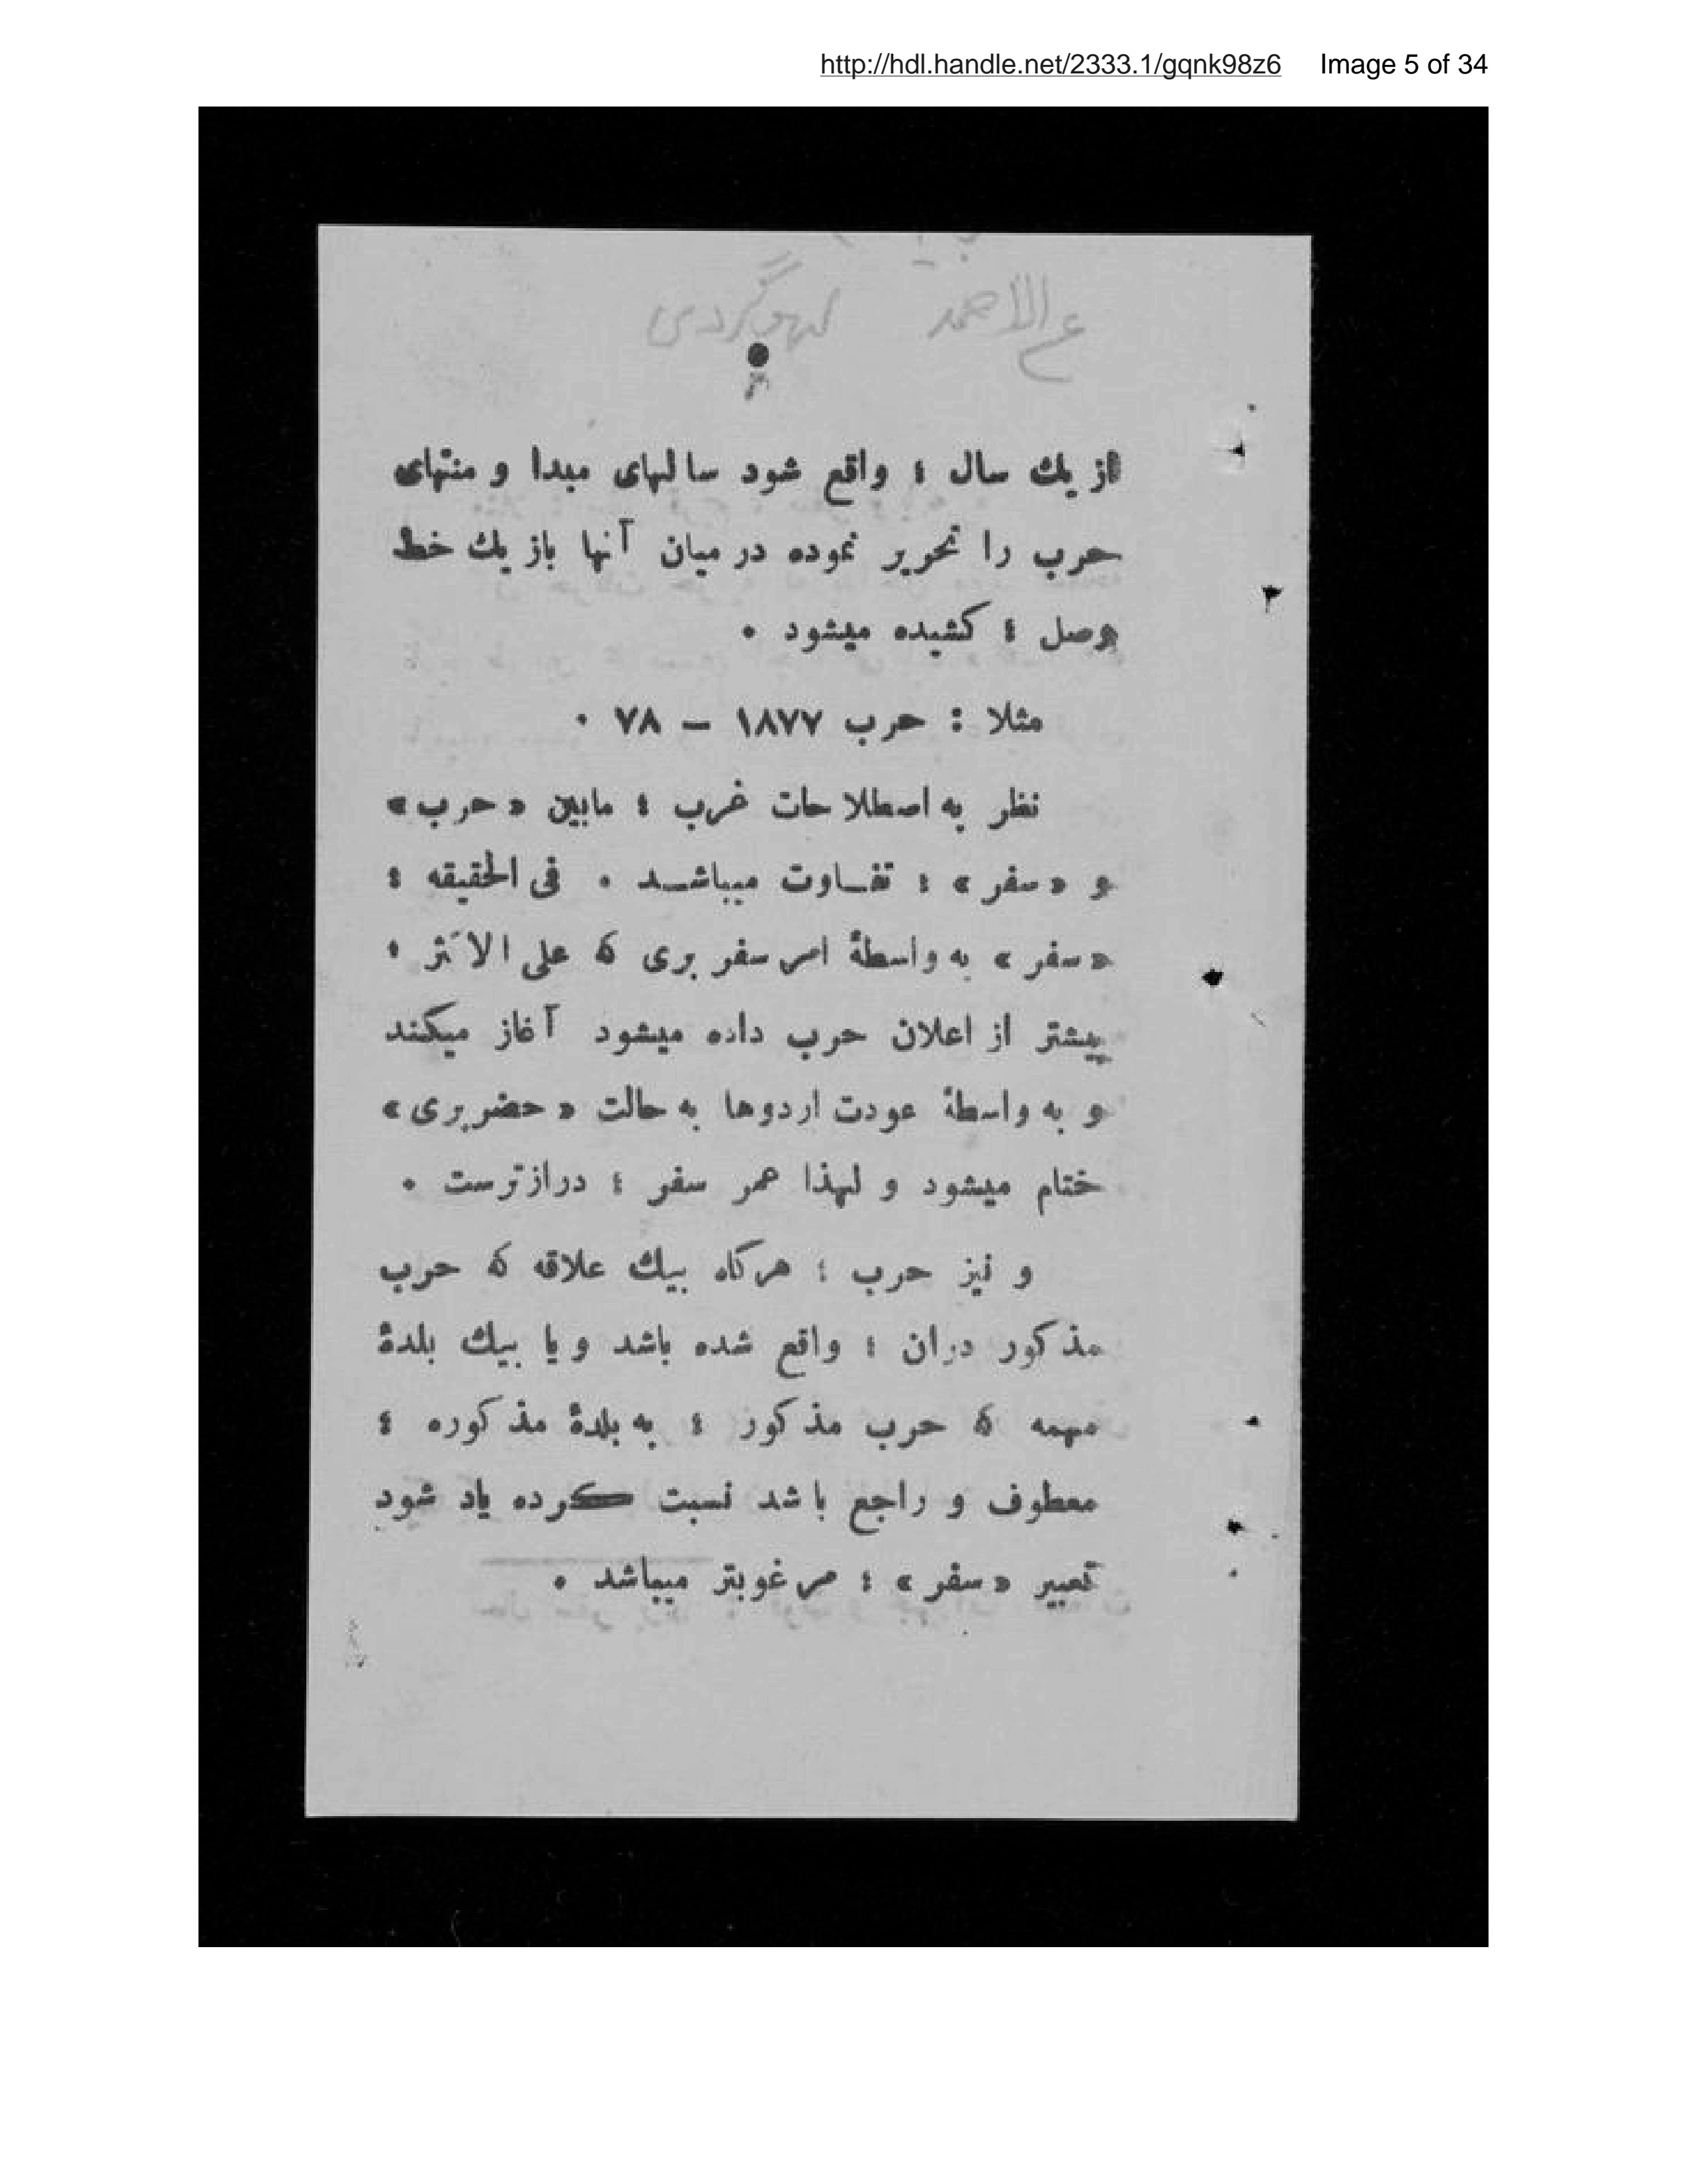 http://hdl.handle.net/2333.1/gqnk98z6 Image 5 of 34
از یك سال ؛ واقع شود سالهای مبدا و منتهای
حرب را تحریر نموده در میان آنها باز یك خط
وصل ؛ كشیده میشود .
مثلا : حرب ١٨٧٧ – ٧٨ .
نظر به اصطلاحات غرب ؛ مابین «حرب»
و «سفر» ؛ تفاوت میباشد . فی الحقیقه ؛
«سفر» به واسطهٔ امر سفر بری كه علی الاكثر ،
پیشتر از اعلان حرب داده میشود آغاز میكند
و به واسطهٔ عودت اردوها به حالت «حضر بری»
ختام میشود و لهذا عمر سفر ؛ درازترست .
و نیز حرب ؛ هركاه بیك علاقه كه حرب
مذكور دران ؛ واقع شده باشد و یا بیك بلدهٔ
مهمه كه حرب مذكور ؛ به بلدهٔ مذكوره ؛
معطوف و راجع باشد نسبت كرده یاد شود
تعبیر «سفر» ؛ مرغوبتر میباشد .